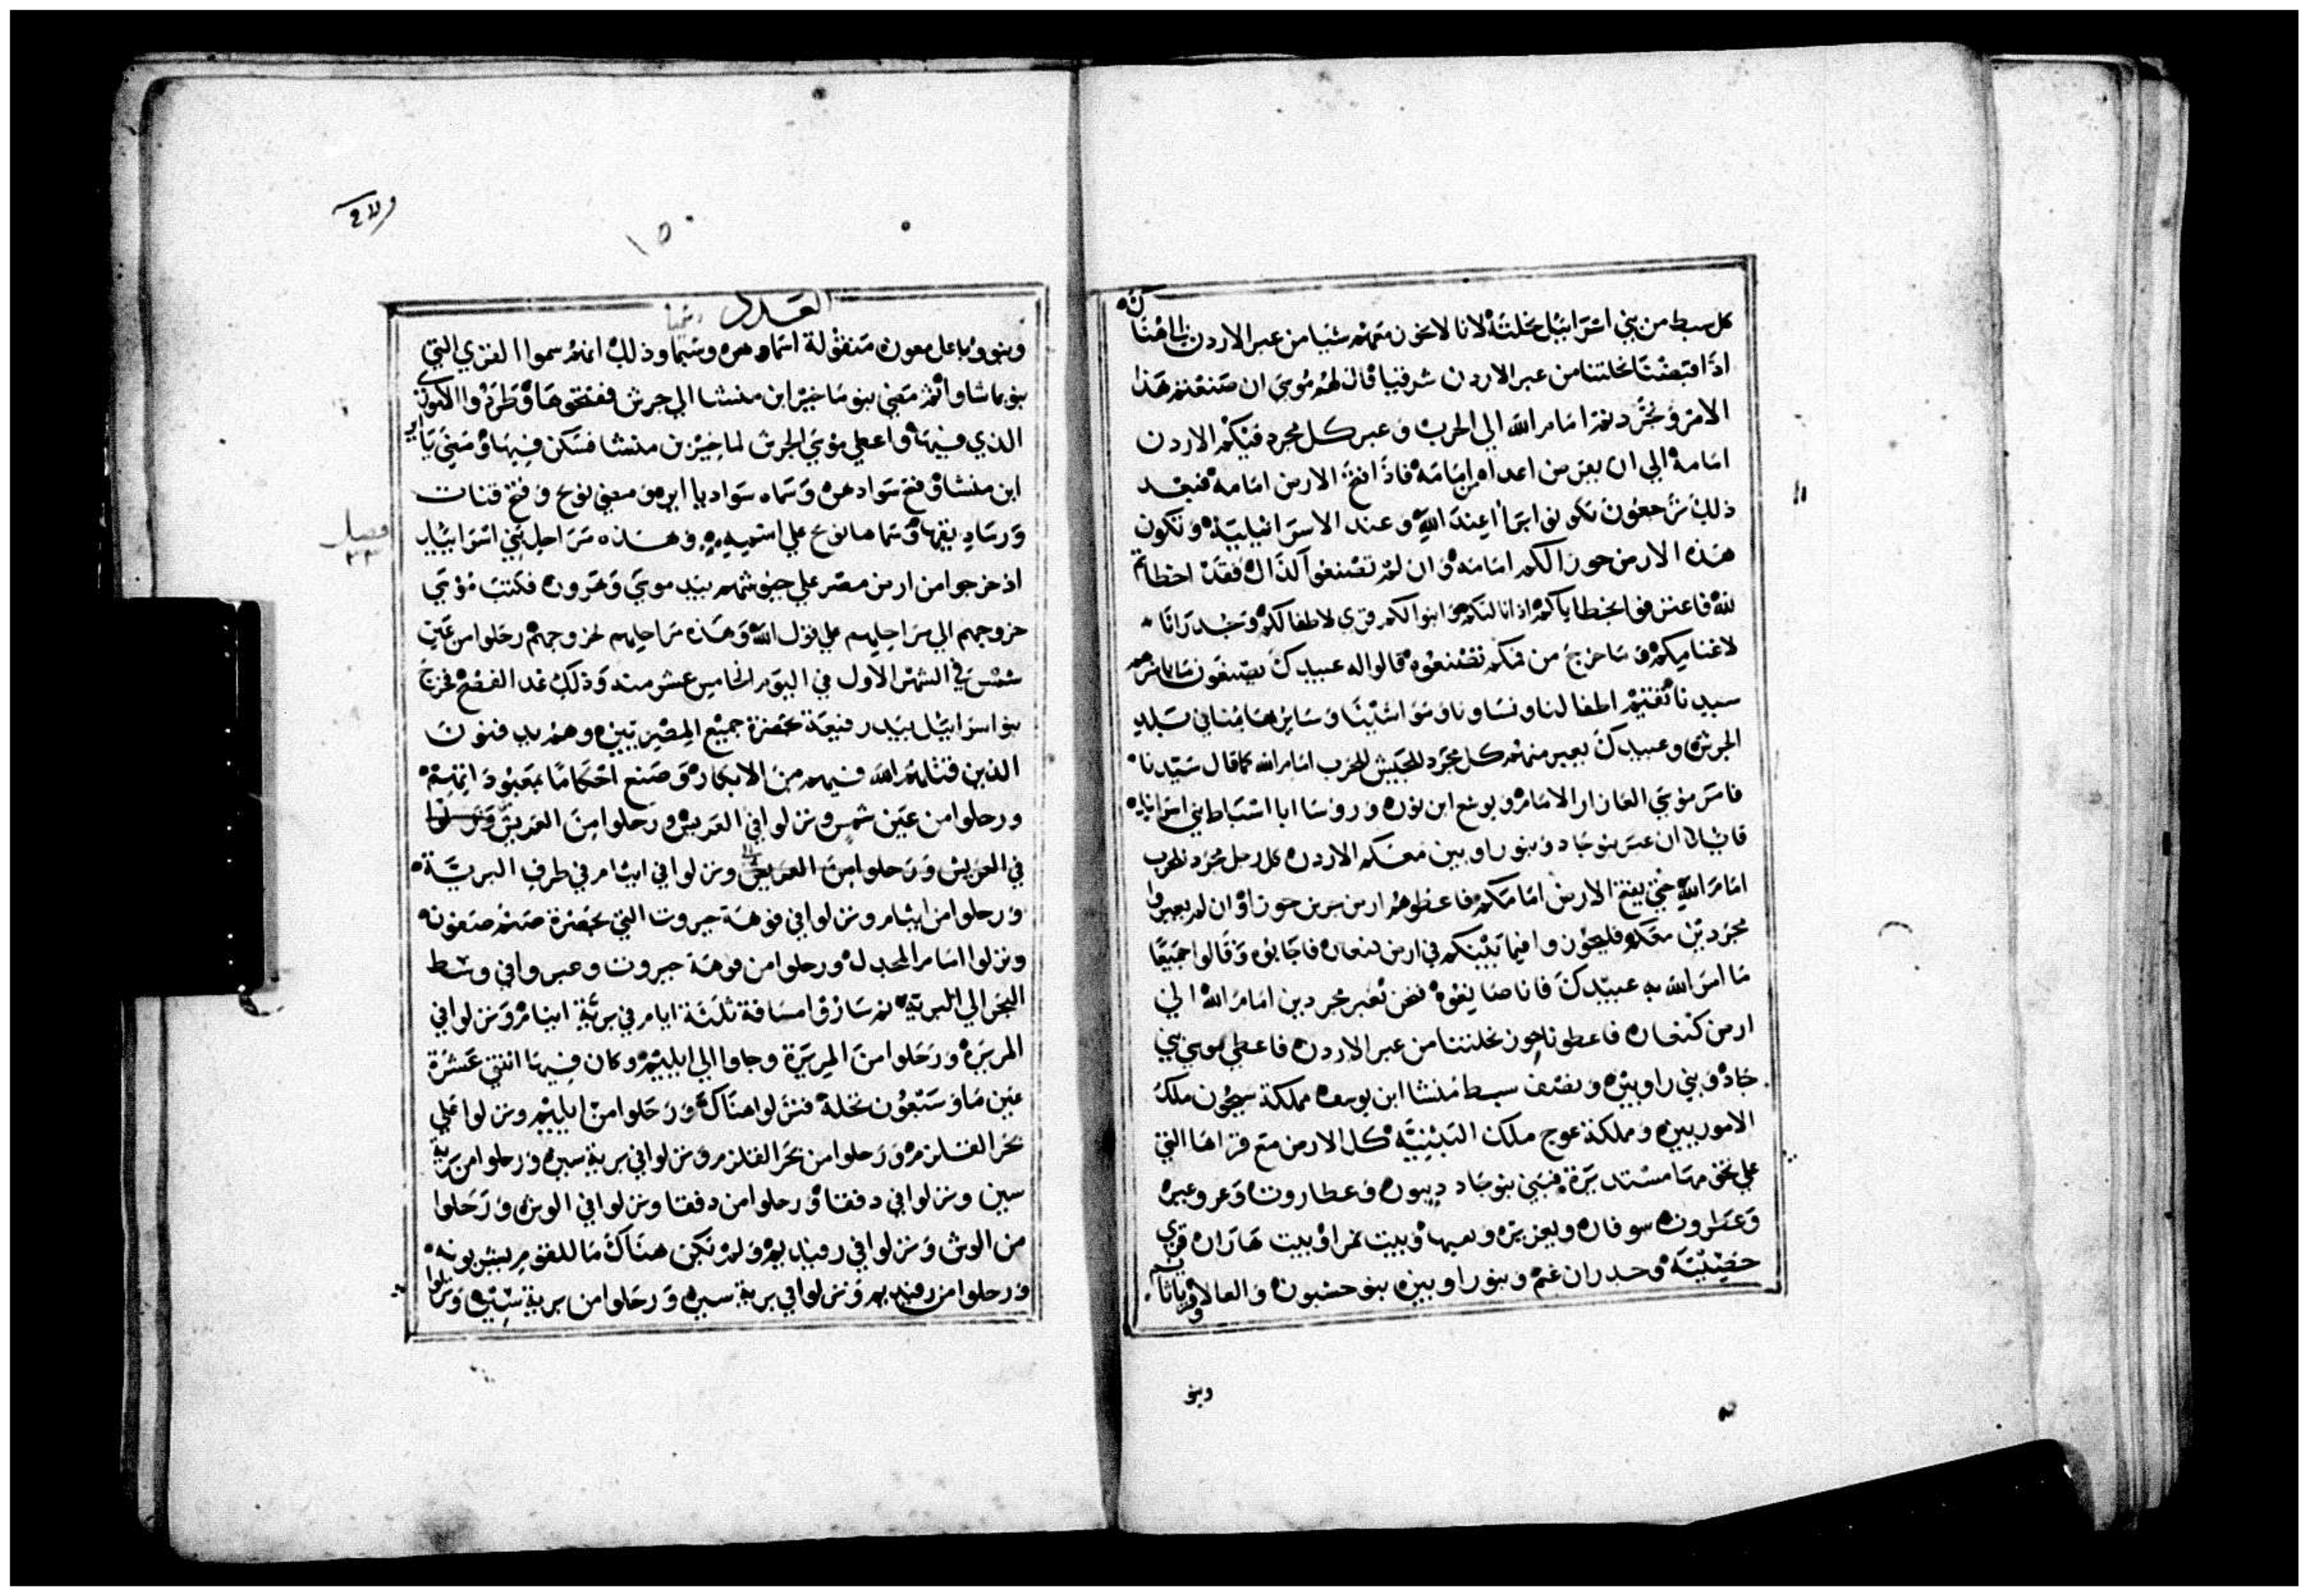 كل سبط من بني اسرائيل نحلته لانا لا نحوز معهم شيا من عبر الاردن الي هنا لانه
اذا قبضنا نحلتنا من عبر الاردن شرقيا قال لهم موسي ان صنعتم هذا
الامر وتجردتم امام الله الي الحرب وعبر كل مجرد فيكم الاردن
امامه الي ان يقرض اعداه من امامه فاذا فتح الارض امامه فبعد
ذلك ترجعون تكونوا ابراا عند الله وعند الاسرائيلية وتكون
هذه الارض حوزا لكم امامه وان لم تصنعوا كذاك فقد اخطاتم
لله فاعترفوا بخطاياكم اذا نالتكم وابنوا لكم قري لاطفالكم وجدرانا
لاغنامكم وما خرج من فمكم تصنعوه قالوا له عبيدك يصنعون ما يامر به
سيدنا تقيم اطفالنا ونساونا ومواشينا وساير بهايمنا في بلد
الجرش وعبيدك يعبر منهم كل مجرد للجيش للحرب امام الله كما قال سيدنا
فامر موسي العازار الامام ويوشع ابن نون وروسا ابا اسباط بني اسرائيل
قايلا ان عبر بنو جاد وبنو راوبين معكم الاردن كل رجل مجرد للحرب
امام الله حتي يفتح الارض امامكم فاعطوهم ارض جرش حوزا وان لم يعبروا
مجردين معكم فليحوزوا فيما بينكم في ارض كنعان فاجابوه وقالوا جميعا
ما امر الله به عبيدك فانا صانعوه نحن نعبر مجردين امام الله الي
ارض كنعان فاعطونا حوز نحلتنا من عبر الاردن فاعطي موسي بني
جاد وبني راوبين ونصف سبط منشا ابن يوسف مملكة سيحون ملك
الاموريين ومملكة عوج ملك البثنية كل الارض مع قراها التي
علي تخومها مستديرة فبني بنو جاد ديبون وعطاروت وعروعير
وعطروت سوفان ويعزير ويعبها وبيت نمرا وبيت هاران قري
حصينة وجدران غنم وبنو راوبين بنو حشبون والعالا وقرياثايم
وبنو
العدد
١٥٠
وبنوو باعل معون منقولة اسماوهن وسبما وذلك انهم سموا القري التي
بنو باشما واتم مضي بنو ماخير ابن منشا الي جرش ففتحوها وطردوا الاموريين
الذي فيها واعطي موسي الجرش لماخير بن منشا فسكن فيها ومضي ياير
ابن منشا وفتح سوادهن وسماه سواد ياير ومضي نوبح وفتح قنات
ورساتيقها وسماها نوبح علي اسمه وهذه مراحل بني اسرائيل
فصل
٣٣
اذ خرجوا من ارض مصر علي جيوشهم بيد موسي وهرون فكتب موسي
خروجهم الي مراحلهم علي قول الله وهذه مراحلهم لخروجهم رحلوا من عين
شمس في الشهر الاول في اليوم الخامس عشر منه وذلك غد الفصح خرج
بنو اسرائيل بيد رفيعة بحضرة جميع المصريين وهم يدفنون
الذين قتلهم الله فيهم من الابكار وصنع احكاما بمعبوداتهم
ورحلوا من عين شمس ونزلوا في العريش ورحلوا من العريش ونزلوا
في العريش ورحلوا من العريش ونزلوا في ايثام في طرف البرية
ورحلوا من ايثام ونزلوا في فوهة حيروت التي بحضرة صنم صفون
ونزلوا امام المجدل ورحلوا من فوهة حيروت وعبروا في وسط
البحر الي البرية ثم ساروا مسافة ثلثة ايام في برية ايثام ونزلوا في
المريرة ورحلوا من المريرة وجاوا الي ايليم وكان فيها اثنتي عشرة
عين ما وسبعون نخلة فنزلوا هناك ورحلوا من ايليم ونزلوا علي
بحر القلزم ورحلوا من بحر القلزم ونزلوا في برية سين ورحلوا من برية
سين ونزلوا في دفقا ورحلوا من دفقا ونزلوا في الوش ورحلوا
من الوش ونزلوا في رفيديم ولم تكن هناك ما للقوم يشربونه
ورحلوا من رفيديم ونزلوا في برية سين ورحلوا من برية سين ونزلوا